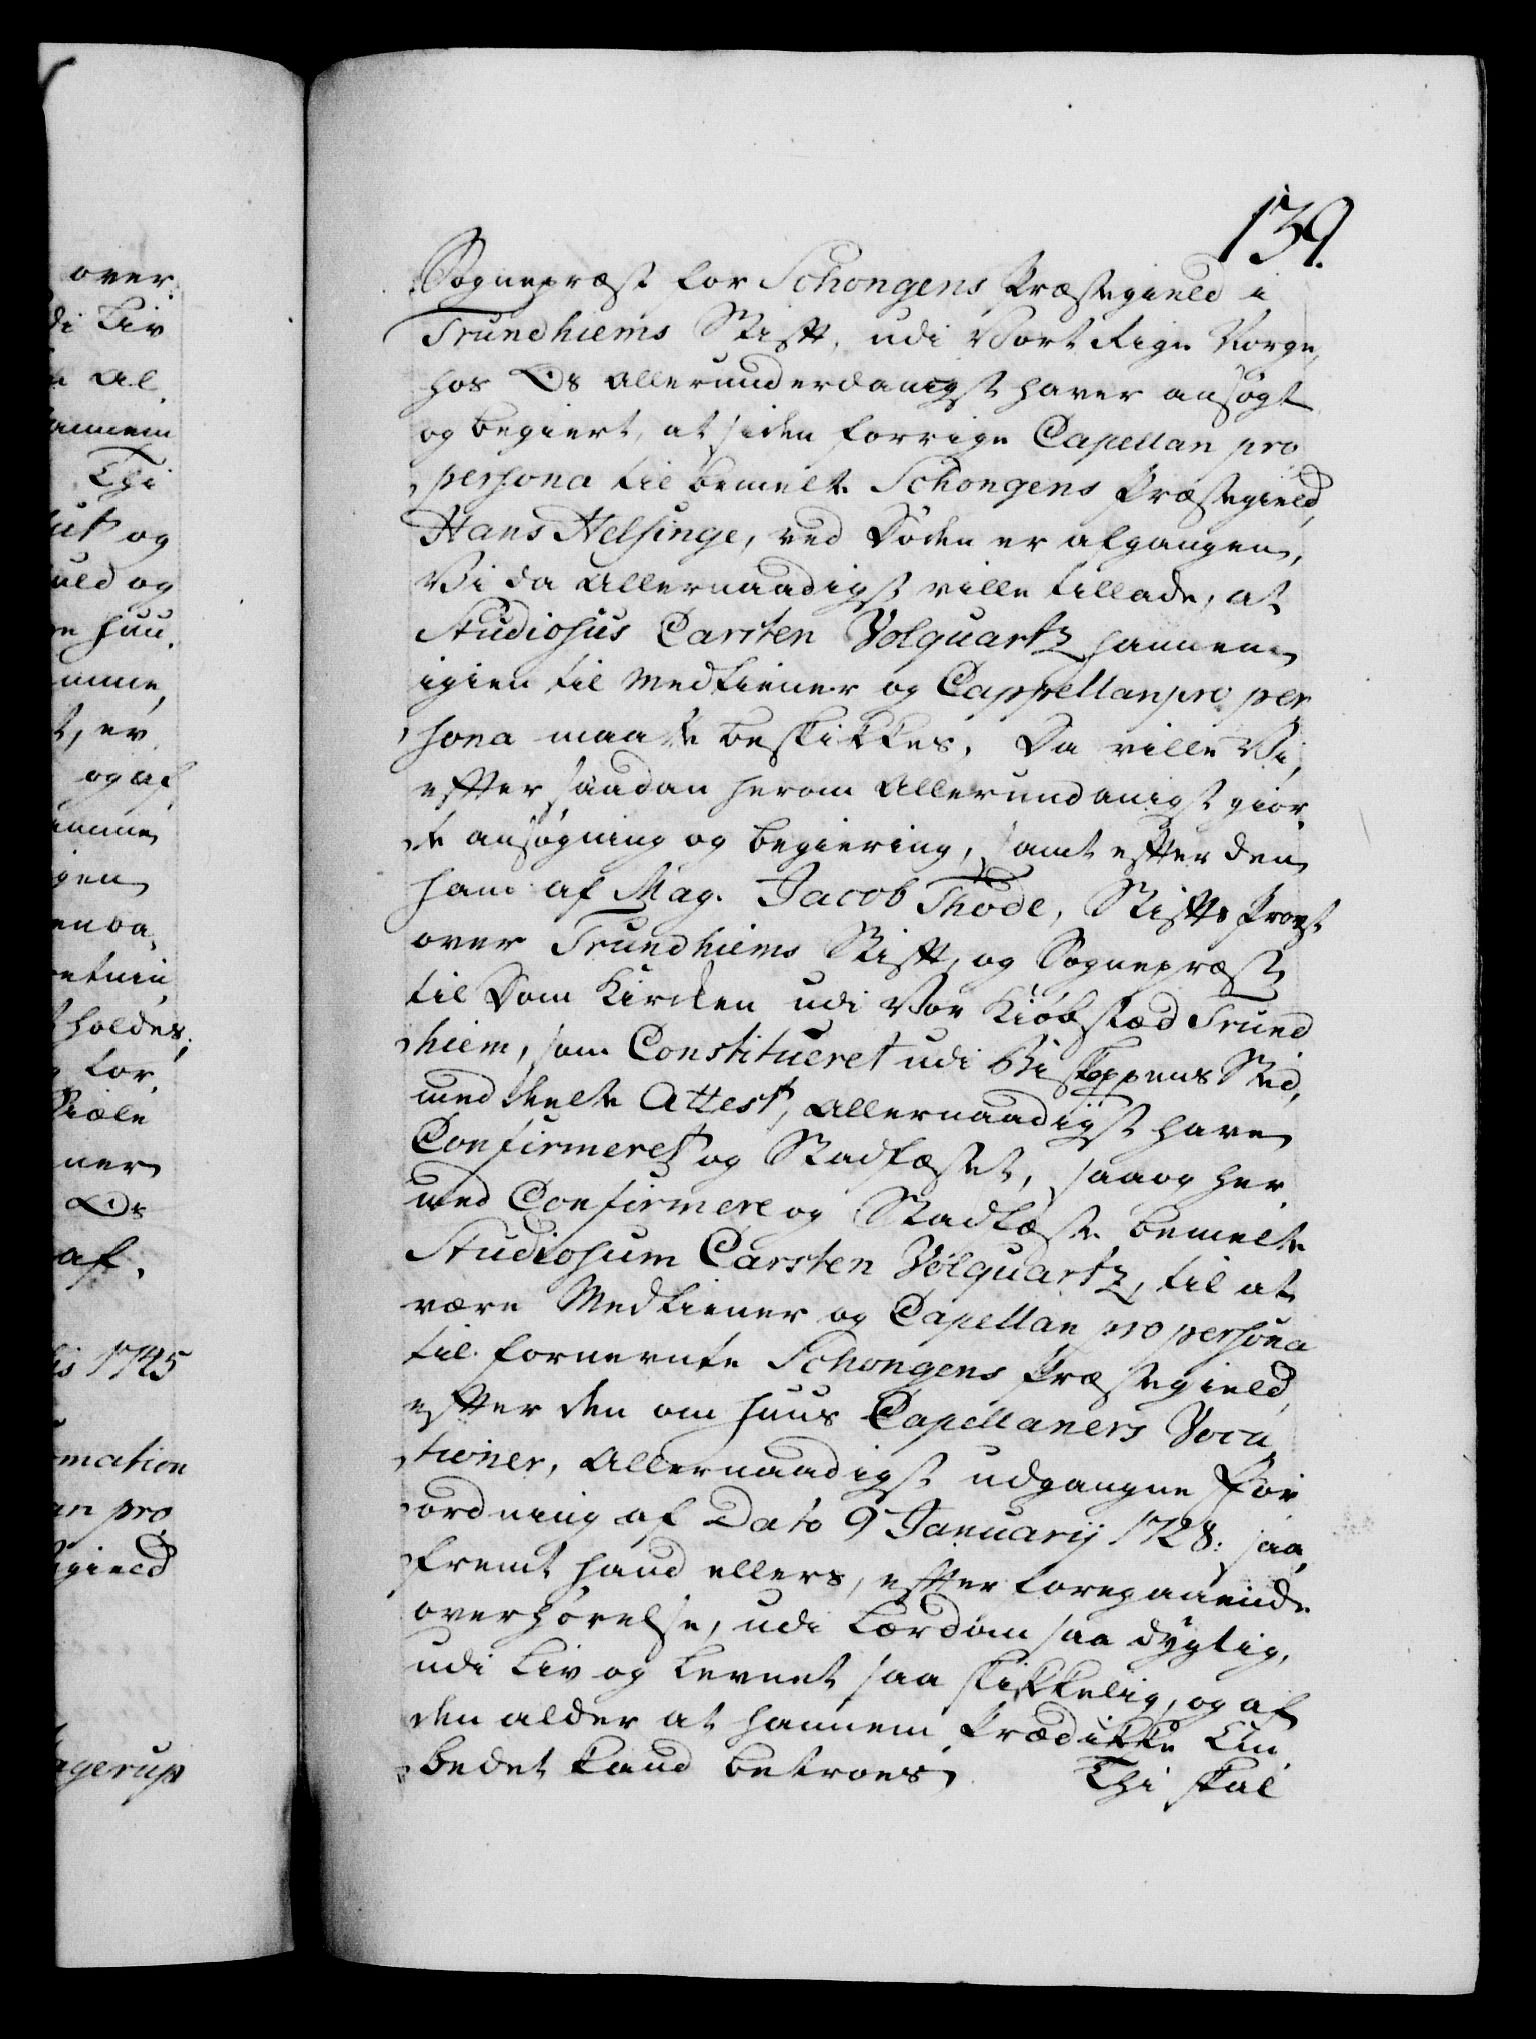 over
di Liv
al
annem
Thi
og
uld og
huu
mme,
t, er
og af
amme
gen
holder,
for
Siæle
ner
Os
af,
is 1745
mation
an pro
gield
agerup
139.
Sognepræst for Schongens Præstegield i
Trundhiems Stift, udi Vort Rige Norge,
hos Os allerunderdanigst haver ansøgt
og begiert, at siden forrige Capellan pro
persona til bemelte Schongens Præstegield,
Hans Helsinge, ved Døden er afgangen,
Vi da allernaadigst ville tillade, at
Studiosus Carsten Volquartz hannem
igien til Medtiener og Cappellan pro per
sona maatte beskikkes, Da ville Vi,
efter saadan herom allerundanigst gior,
te ansøgning og begiering, samt efter den
ham af Mag. Jacob Thode, Stifts Provst
over Trundhiems Stift, og Sognepræst
til Dom Kirken udi Vor Kiøbstæd Trund
hiem, som Constitueret udi Biskoppens Sted,
meddeelte Attest, allernaadigst have
Confirmeret og Stadfæstet, saa og her,
med Confirmere og Stadfæste bemelte
Studiosum Carsten Volquartz, til at
være Medtiener og Capellan pro persona
til fornevnte Schongens Præstegield,
efter den om Huus Capellaners Voca,
tioner, allernaadigst udgangne For
ordning af Dato 9 Januarij 1728: saa,
fremt hand ellers, efter foregaaende
overhørelse, udi Lærdom saa dygtig,
udi Liv og Levnet saa skikkelig, og af
den alder at hannem Prædikke Em,
bedet kand betroes, Thi skal